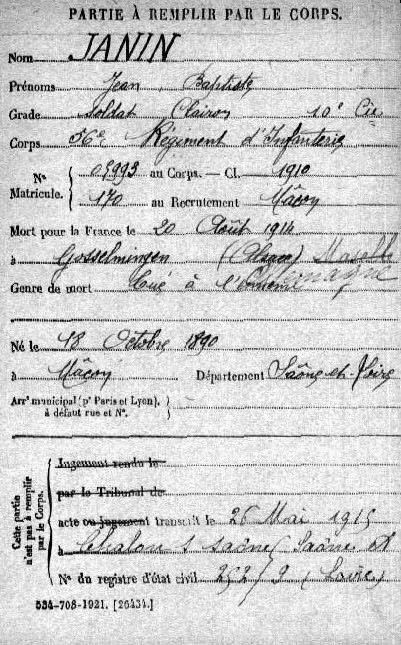 PARTIE À REMPLIR PAR LE CORPS.
Nom JANIN
Prénoms Jean Baptiste
Grade Soldat Clairon 10e Cie
Corps 56e Régiment d'Infanterie
Nº Matricule. 05993 au Corps. — Cl. 1910
170 au Recrutement Mâcon
Mort pour la France le 20 Août 1914
à Gosselmingen (Alsace) Moselle
Genre de mort Tué à l'ennemi
Né le 18 Octobre 1890
à Mâcon Département Saône-et-Loire
Arrt municipal (pr Paris et Lyon),
à défaut rue et Nº.
Cette partie n'est pas à remplir par le Corps.
Jugement rendu le
par le Tribunal de
acte ou jugement transcrit le 26 Mai 1915
à Chalon s Saône (Saône et
Nº du registre d'état civil 252/9 (Loire)
534-708-1921. [26434.]